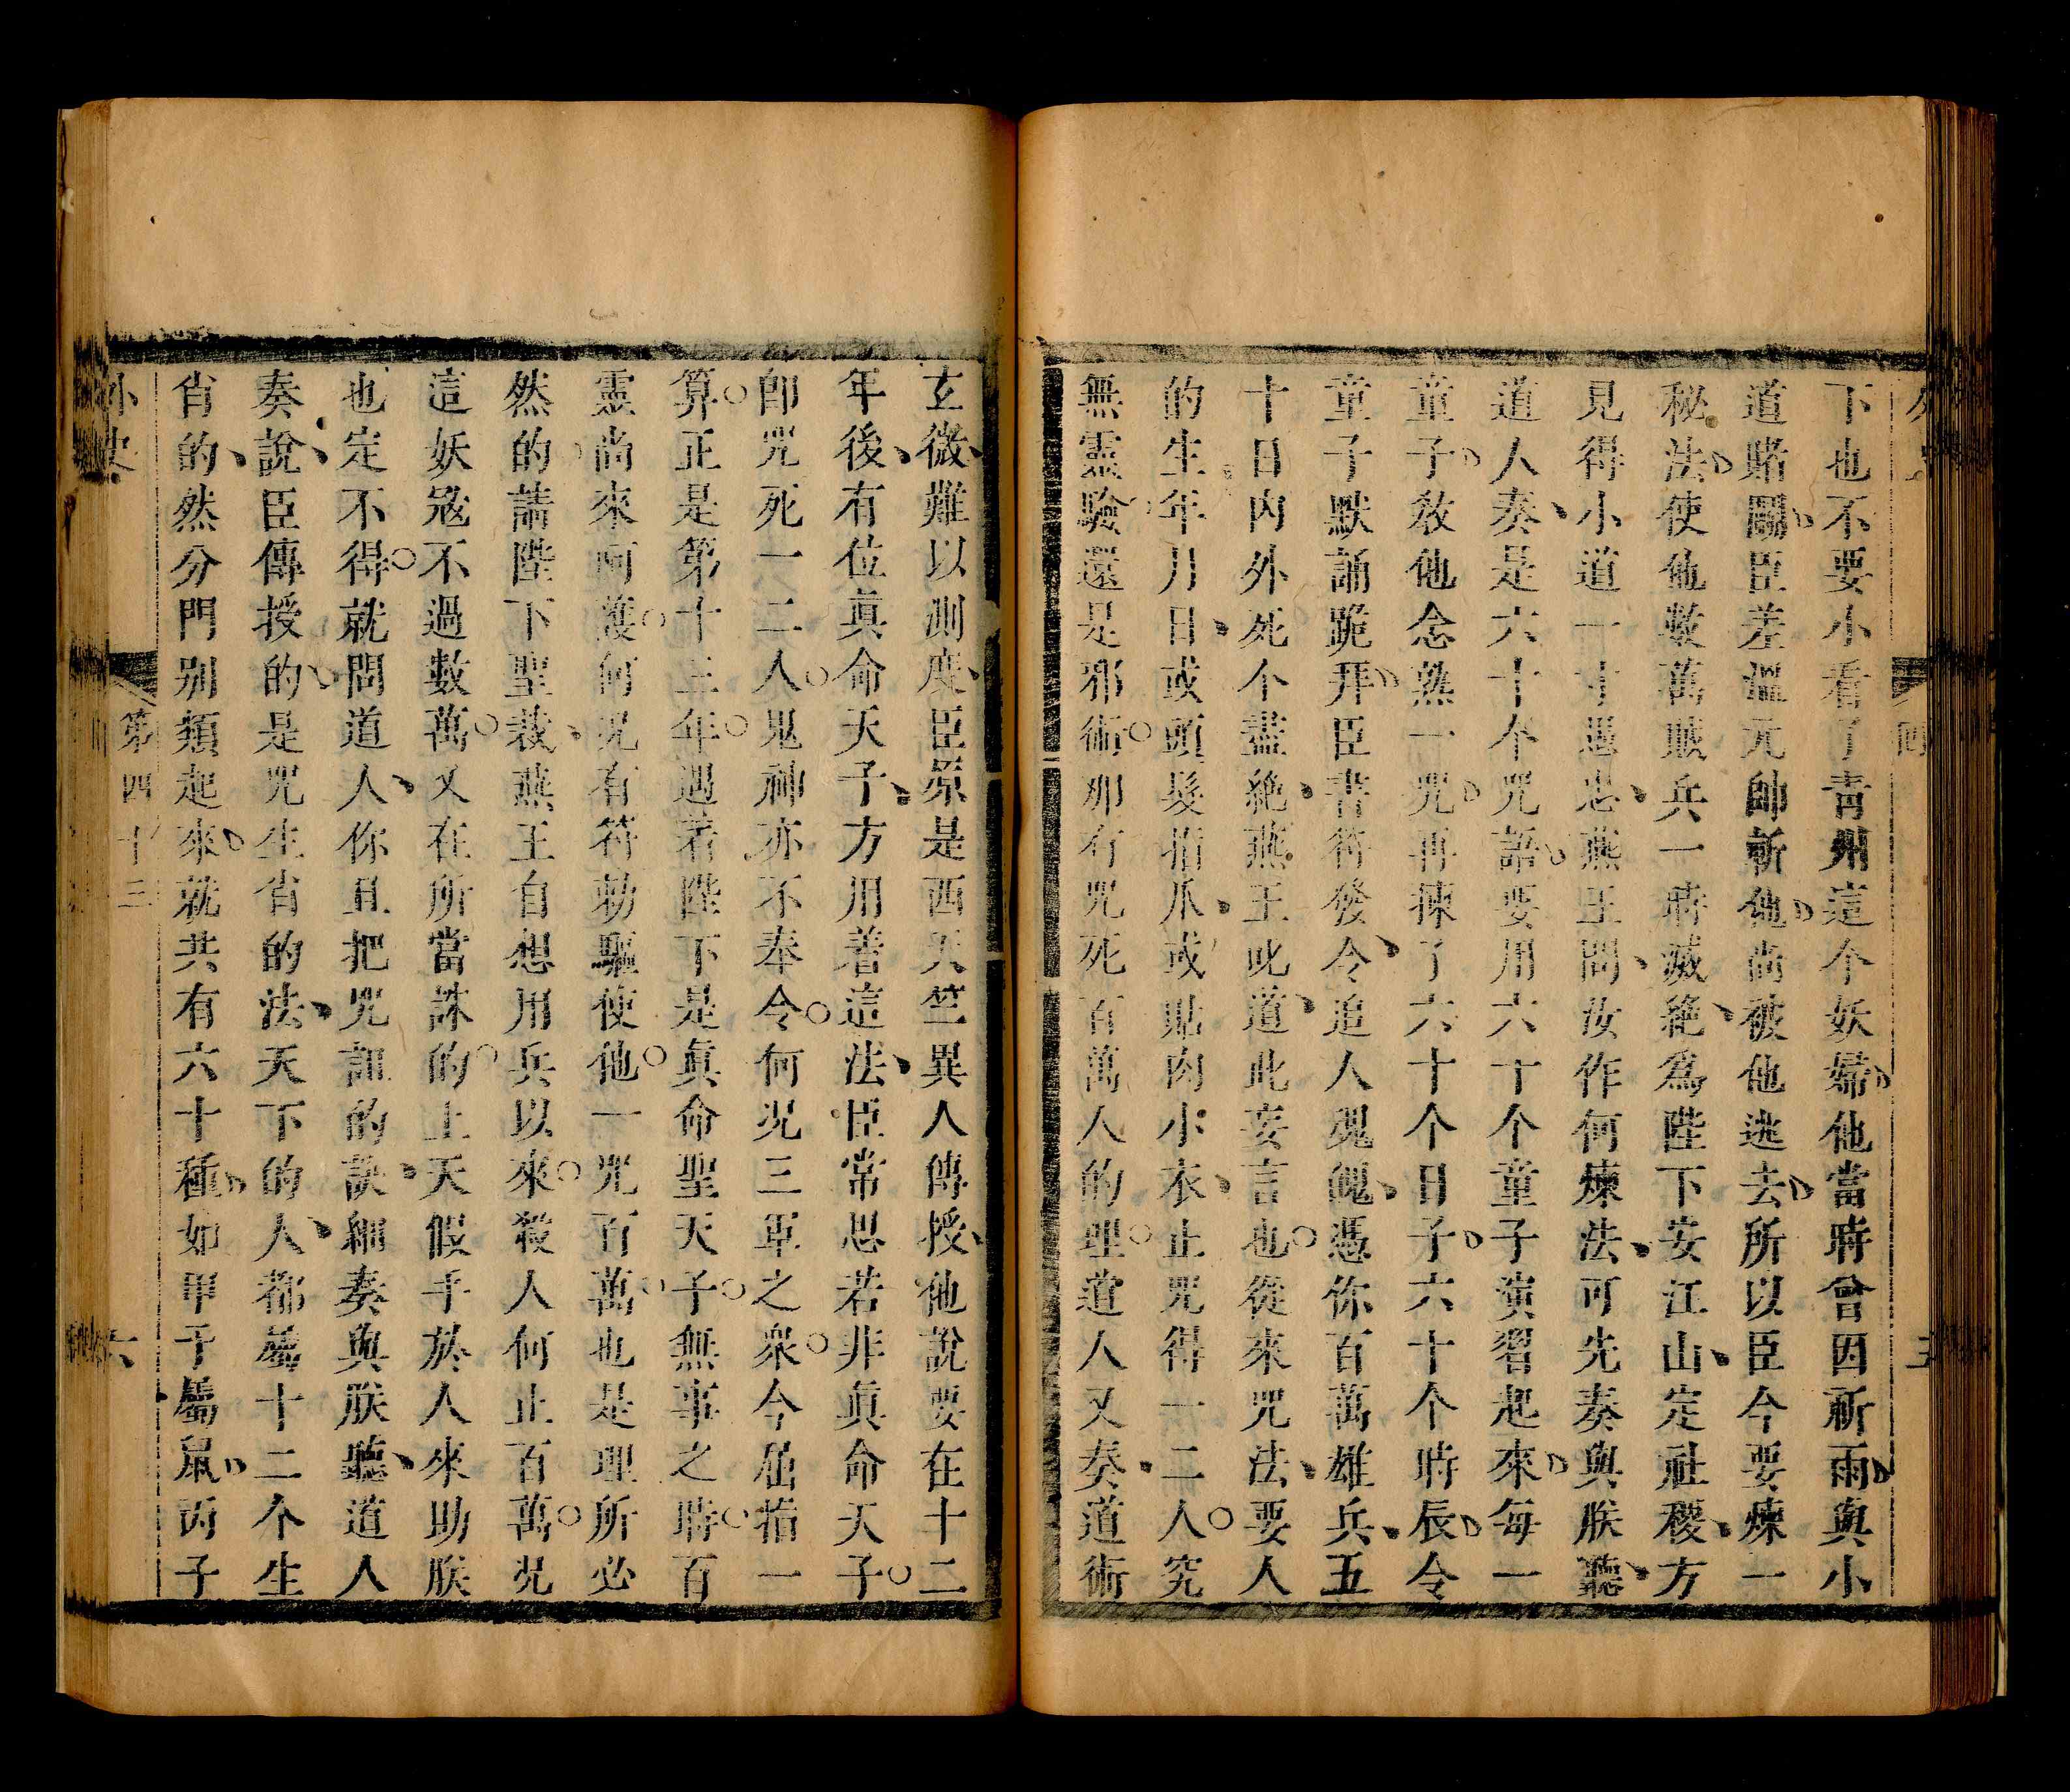 下也不要小看了青州這个妖婦他當時曾因祈雨與小
道賭鬬臣差溫元帥斬他尚被他逃去所以臣今要煉一
秘法使他數萬賊兵一時滅絶爲陛下安江山定社稷方
見得小道一寸愚忠燕王問汝作何煉法可先奏與朕聽
道人奏是六十个咒語要用六十个童子演習起來每一
童子敎他念熟一咒再揀了六十个日子六十个時辰令
童子默誦跪拜臣書符發令追人魂魄憑你百萬雄兵五
十日內外死个盡絶燕王叱道此妄言也從來咒法要人
的生年月日或頭髮指爪或貼肉小衣止咒得一二人究
無靈驗還是邪術那有咒死百萬人的理道人又奏道術
玄微難以測度臣原是西天竺異人傳授他說要在十二
年後有位眞命天子方用着這法臣常思若非眞命天子
卽咒死一二人鬼神亦不奉令何况三軍之衆今屈指一
算正是第十三年遇着陛下是眞命聖天子無事之時百
靈尚來呵護何况有符勅驅使他一咒百萬也是理所必
然的請陛下聖裁燕王自想用兵以來殺人何止百萬况
這妖寇不過數萬又在所當誅的上天假手於人來助朕
也定不得就問道人你且把咒詛的訣細奏與朕聽道人
奏說臣傳授的是咒生肖的法天下的人都屬十二个生
肖的然分門别類起來就共有六十種如甲子屬鼠丙子
外史
第四十三
六